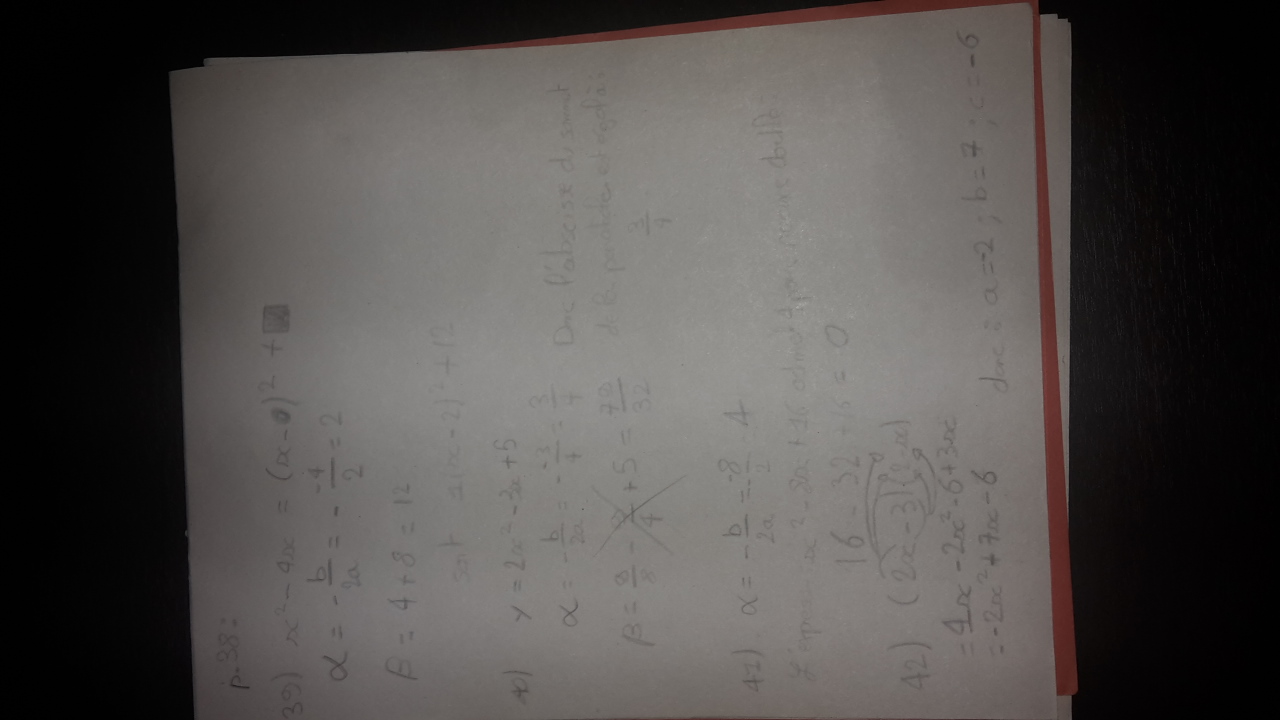 p.38:
39) x² - 4x = (x - )² +
α = - b/2a = - -4/2 = 2
β = 4 + 8 = 12
soit 1(x - 2)² + 12
40) y = 2x² - 3x + 5
α = - b/2a = - -3/4 = 3/4 Donc l'abscisse du sommet
β = 8/8 - 3/4 + 5 = /32 de la parabole est égal à :
3/4
41) α = - b/2a = - -8/2 4
L'expression x² - 8x + 16 admet 4 pour racine double
16 - 32 + 16 = 0
42) (2x - 3)(2 - x)
= 4x - 2x² - 6 + 3x
= -2x² + 7x - 6 donc : a = -2 ; b = 7 ; c = -6